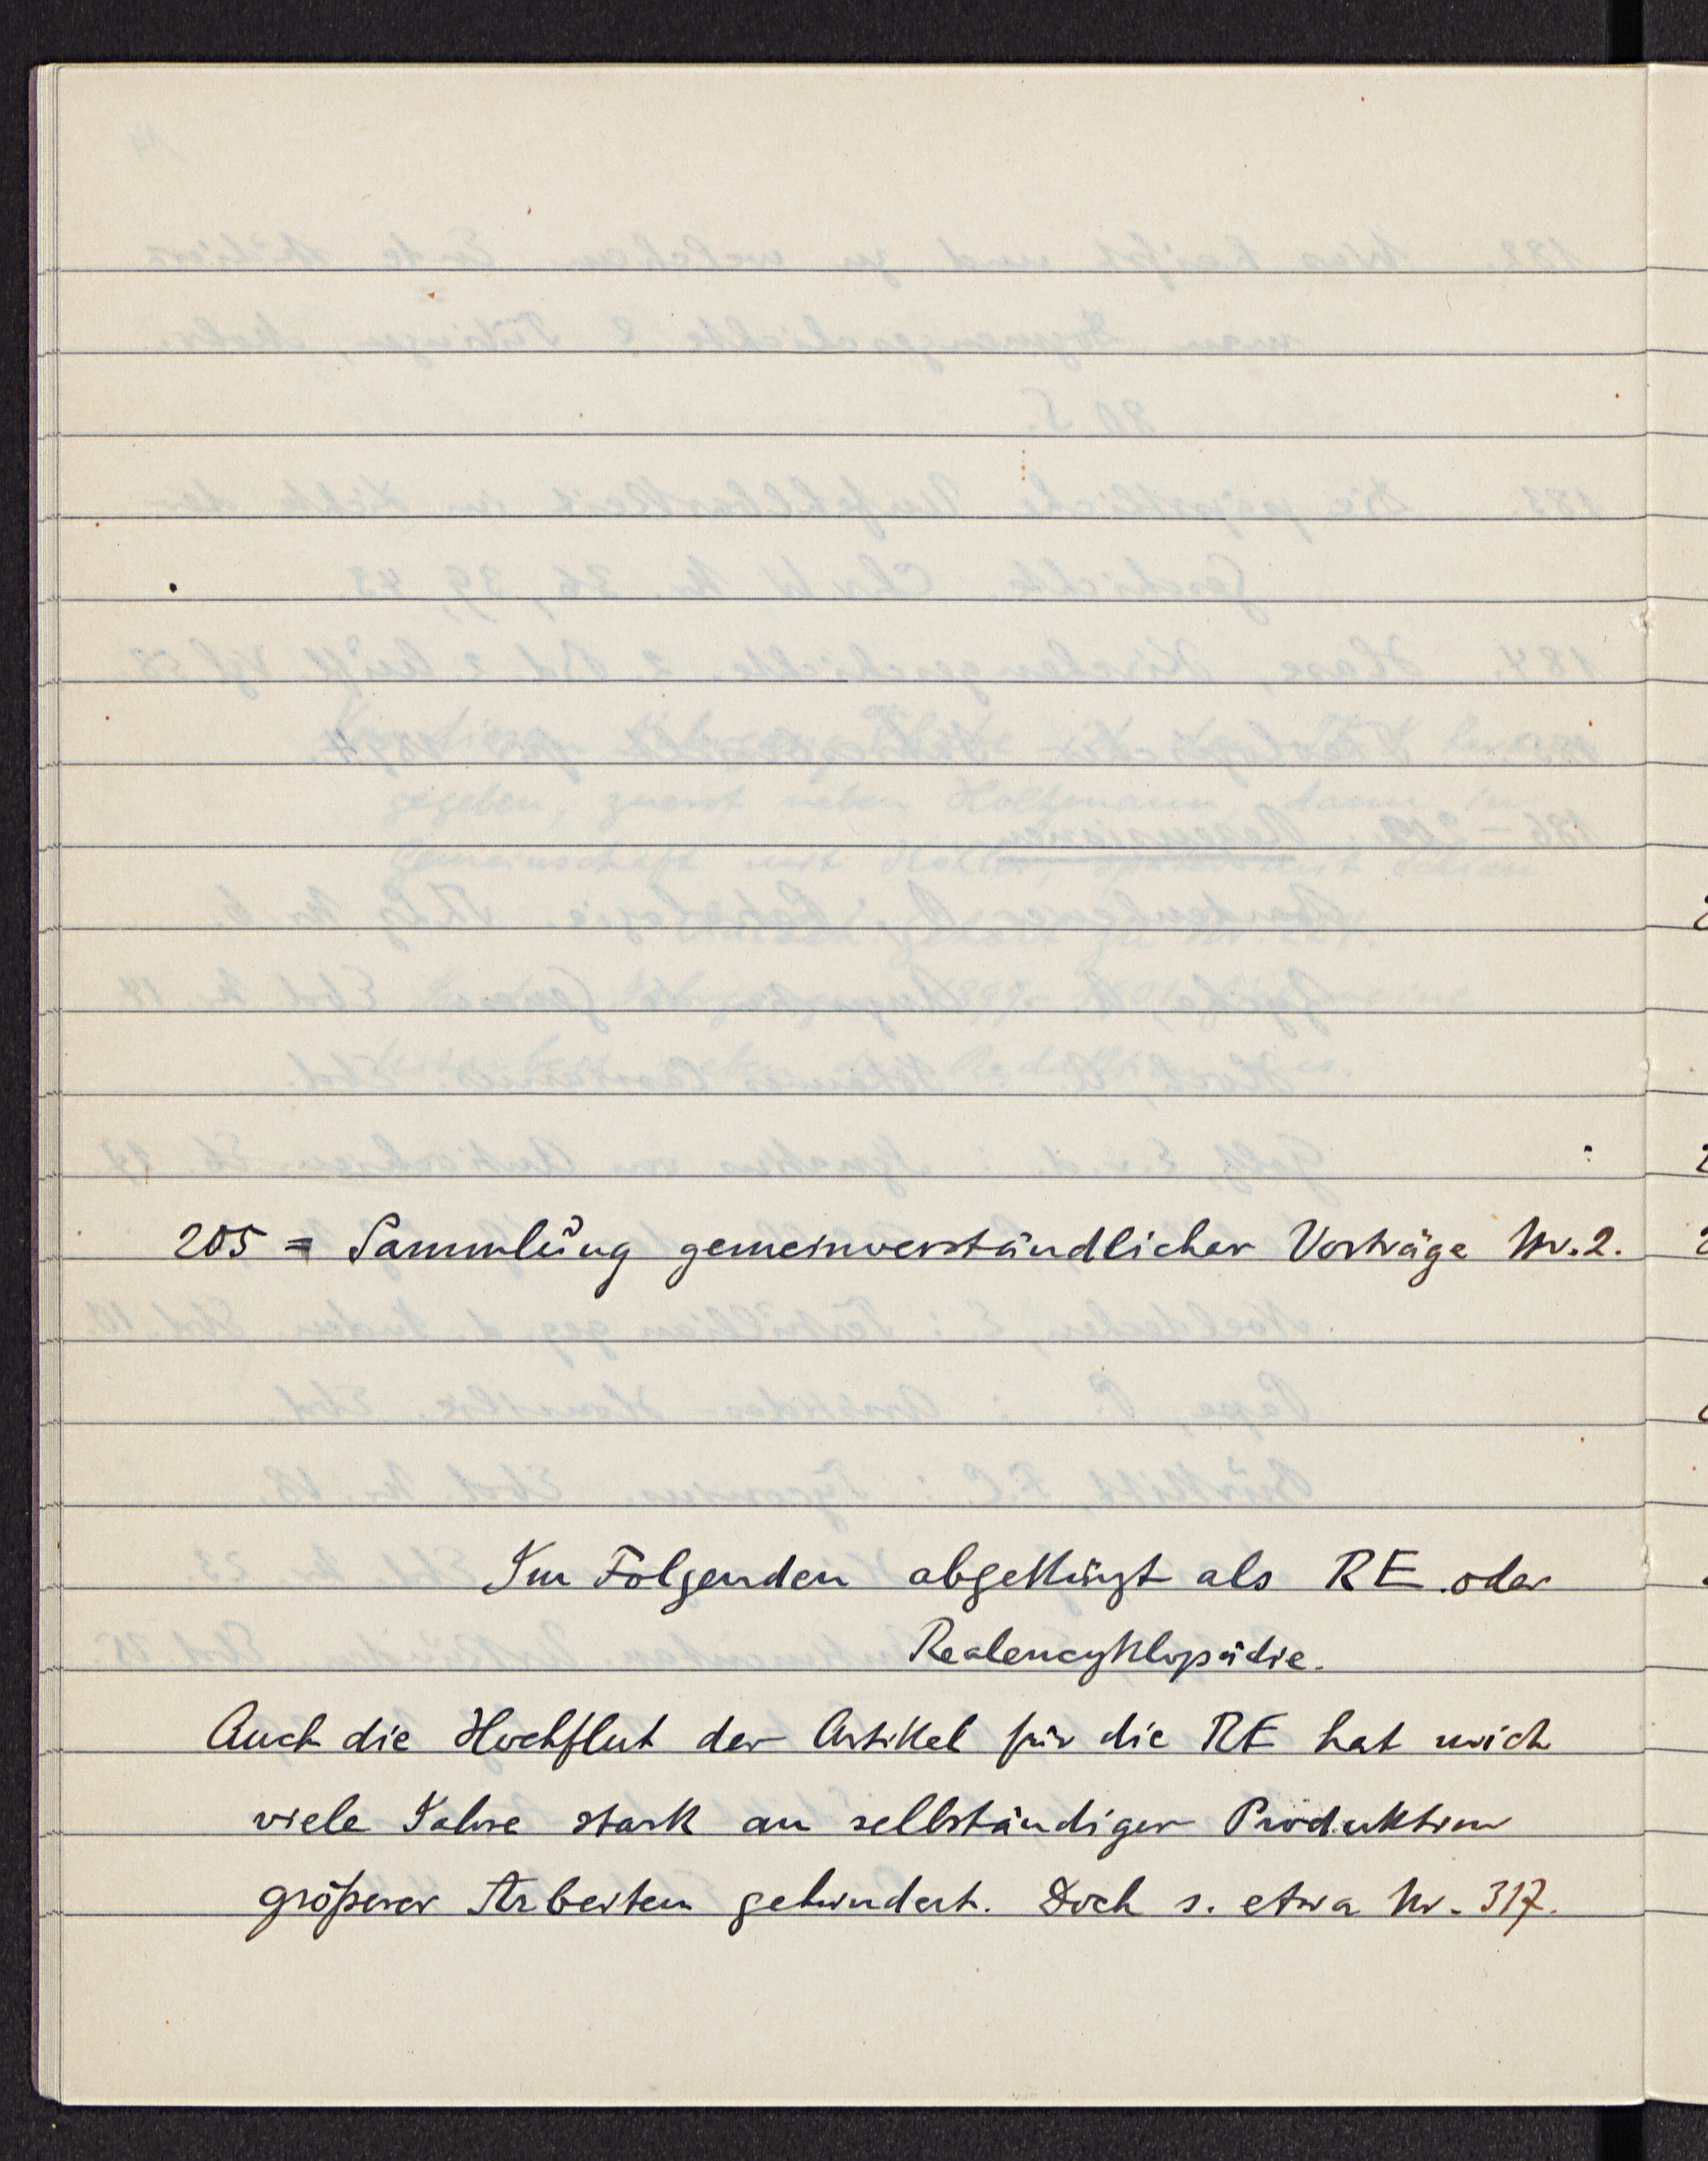 205 = Sammlung gemeinverständlicher Vorträge Nr. 2.
Im Folgenden abgekürzt als RE oder
Realencyklopädie.
Auch die Hochflut der Artikel für die RE hat mich
viele Jahre stark an selbständiger Produktion
größerer Arbeiten gehindert. Doch s. etwa Nr. 317.